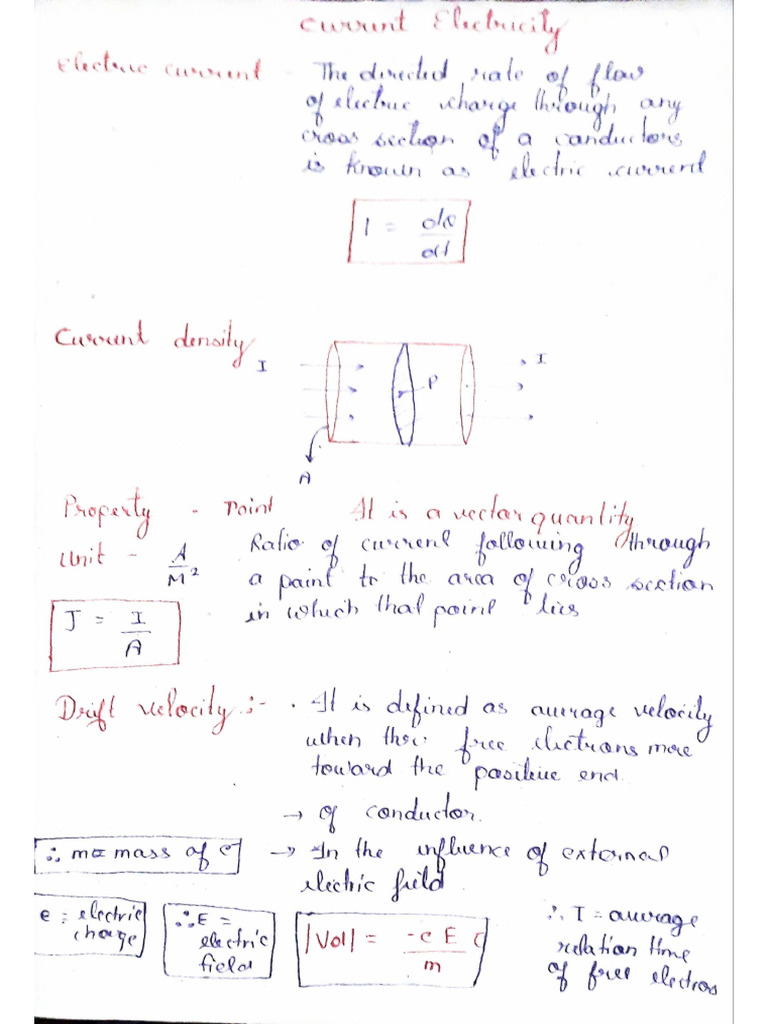 Current Electricity
Electric current - The directed rate of flow
of electric charge through any
cross section of a conductors
is known as electric current
I = dQ/dt
Current density
I
P
I
A
Property - Point It is a vector quantity
Unit - A/M² Ratio of current following through
a point to the area of cross section
in which that point lies
J = I/A
Drift velocity :- . It is defined as average velocity
when free electrons move
toward the positive end
→ of conductor.
∴ m = mass of e⁻ → In the influence of external
electric field
e = electric
charge
∴ E =
electric
field
|Vd| = -e E τ/m
∴ T = average
relation time
of free electros